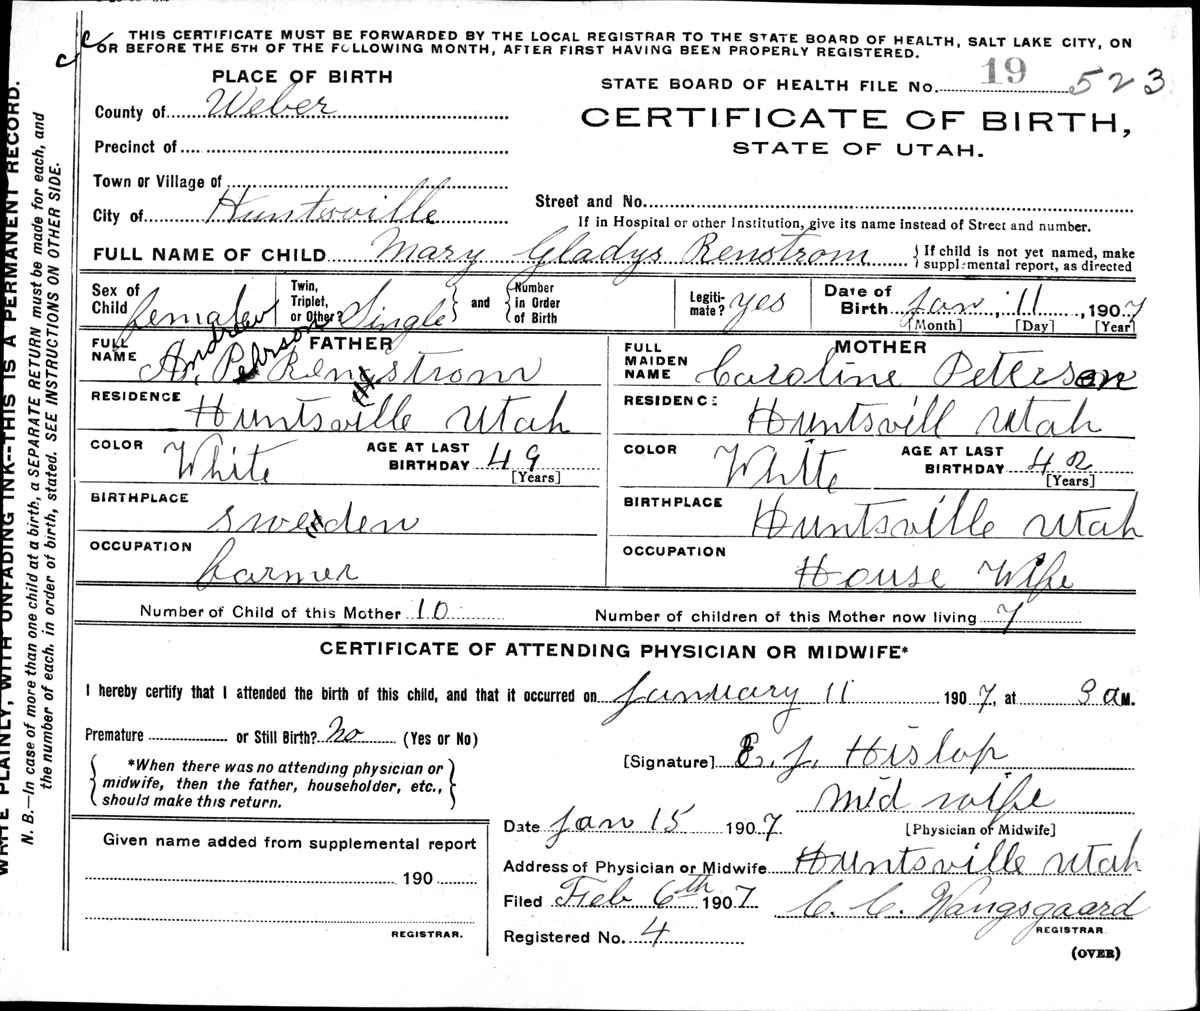 THIS CERTIFICATE MUST BE FORWARDED BY THE LOCAL REGISTRAR TO THE STATE BOARD OF HEALTH, SALT LAKE CITY, ON
OR BEFORE THE 5TH OF THE FOLLOWING MONTH, AFTER FIRST HAVING BEEN PROPERLY REGISTERED.
PLACE OF BIRTH
STATE BOARD OF HEALTH FILE No. 19 523
County of Weber
CERTIFICATE OF BIRTH,
STATE OF UTAH.
Precinct of
Town or Village of
City of Huntsville
Street and No.
If in Hospital or other Institution, give its name instead of Street and number.
FULL NAME OF CHILD Mary Gladys Renstrom { If child is not yet named, make
supplemental report, as directed
Sex of Child female
Twin, Triplet, or Other? Single } and { Number in Order of Birth
Legitimate? yes
Date of Birth Jan, 11, 1907
[Month] [Day] [Year]
FATHER
FULL NAME Andrew Pearson Renstrom
RESIDENCE Huntsville Utah
COLOR White AGE AT LAST BIRTHDAY 49
[Years]
BIRTHPLACE Sweden
OCCUPATION farmer
MOTHER
FULL MAIDEN NAME Caroline Petersen
RESIDENCE Huntsvill Utah
COLOR White AGE AT LAST BIRTHDAY 42
[Years]
BIRTHPLACE Huntsville Utah
OCCUPATION House Wife
Number of Child of this Mother 10 Number of children of this Mother now living 7
CERTIFICATE OF ATTENDING PHYSICIAN OR MIDWIFE*
I hereby certify that I attended the birth of this child, and that it occurred on January 11 1907, at 3 a M.
Premature or Still Birth? No (Yes or No)
[Signature] E. J. Hislop
{ *When there was no attending physician or
midwife, then the father, householder, etc.,
should make this return. }
mid wife
[Physician or Midwife]
Date Jan 15 1907
Given name added from supplemental report
190
REGISTRAR.
Address of Physician or Midwife Huntsville Utah
Filed Feb 6th 1907 C. C. Wangsgaard
REGISTRAR
Registered No. 4
(OVER)
WRITE PLAINLY, WITH UNFADING INK--THIS IS A PERMANENT RECORD.
N. B.—In case of more than one child at a birth, a SEPARATE RETURN must be made for each, and
the number of each, in order of birth, stated. SEE INSTRUCTIONS ON OTHER SIDE.